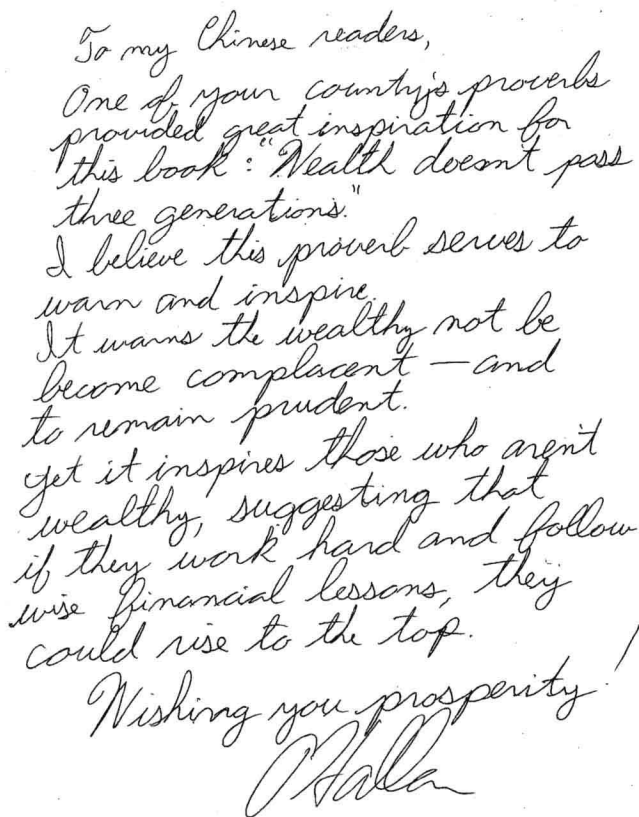 To my Chinese readers,
One of your country's proverbs
provided great inspiration for
this book: "Wealth doesn't pass
three generations."
I believe this proverb serves to
warn and inspire.
It warns the wealthy not be
become complacent — and
to remain prudent.
Yet it inspires those who aren't
wealthy, suggesting that
if they work hard and follow
wise financial lessons, they
could rise to the top.
Wishing you prosperity!